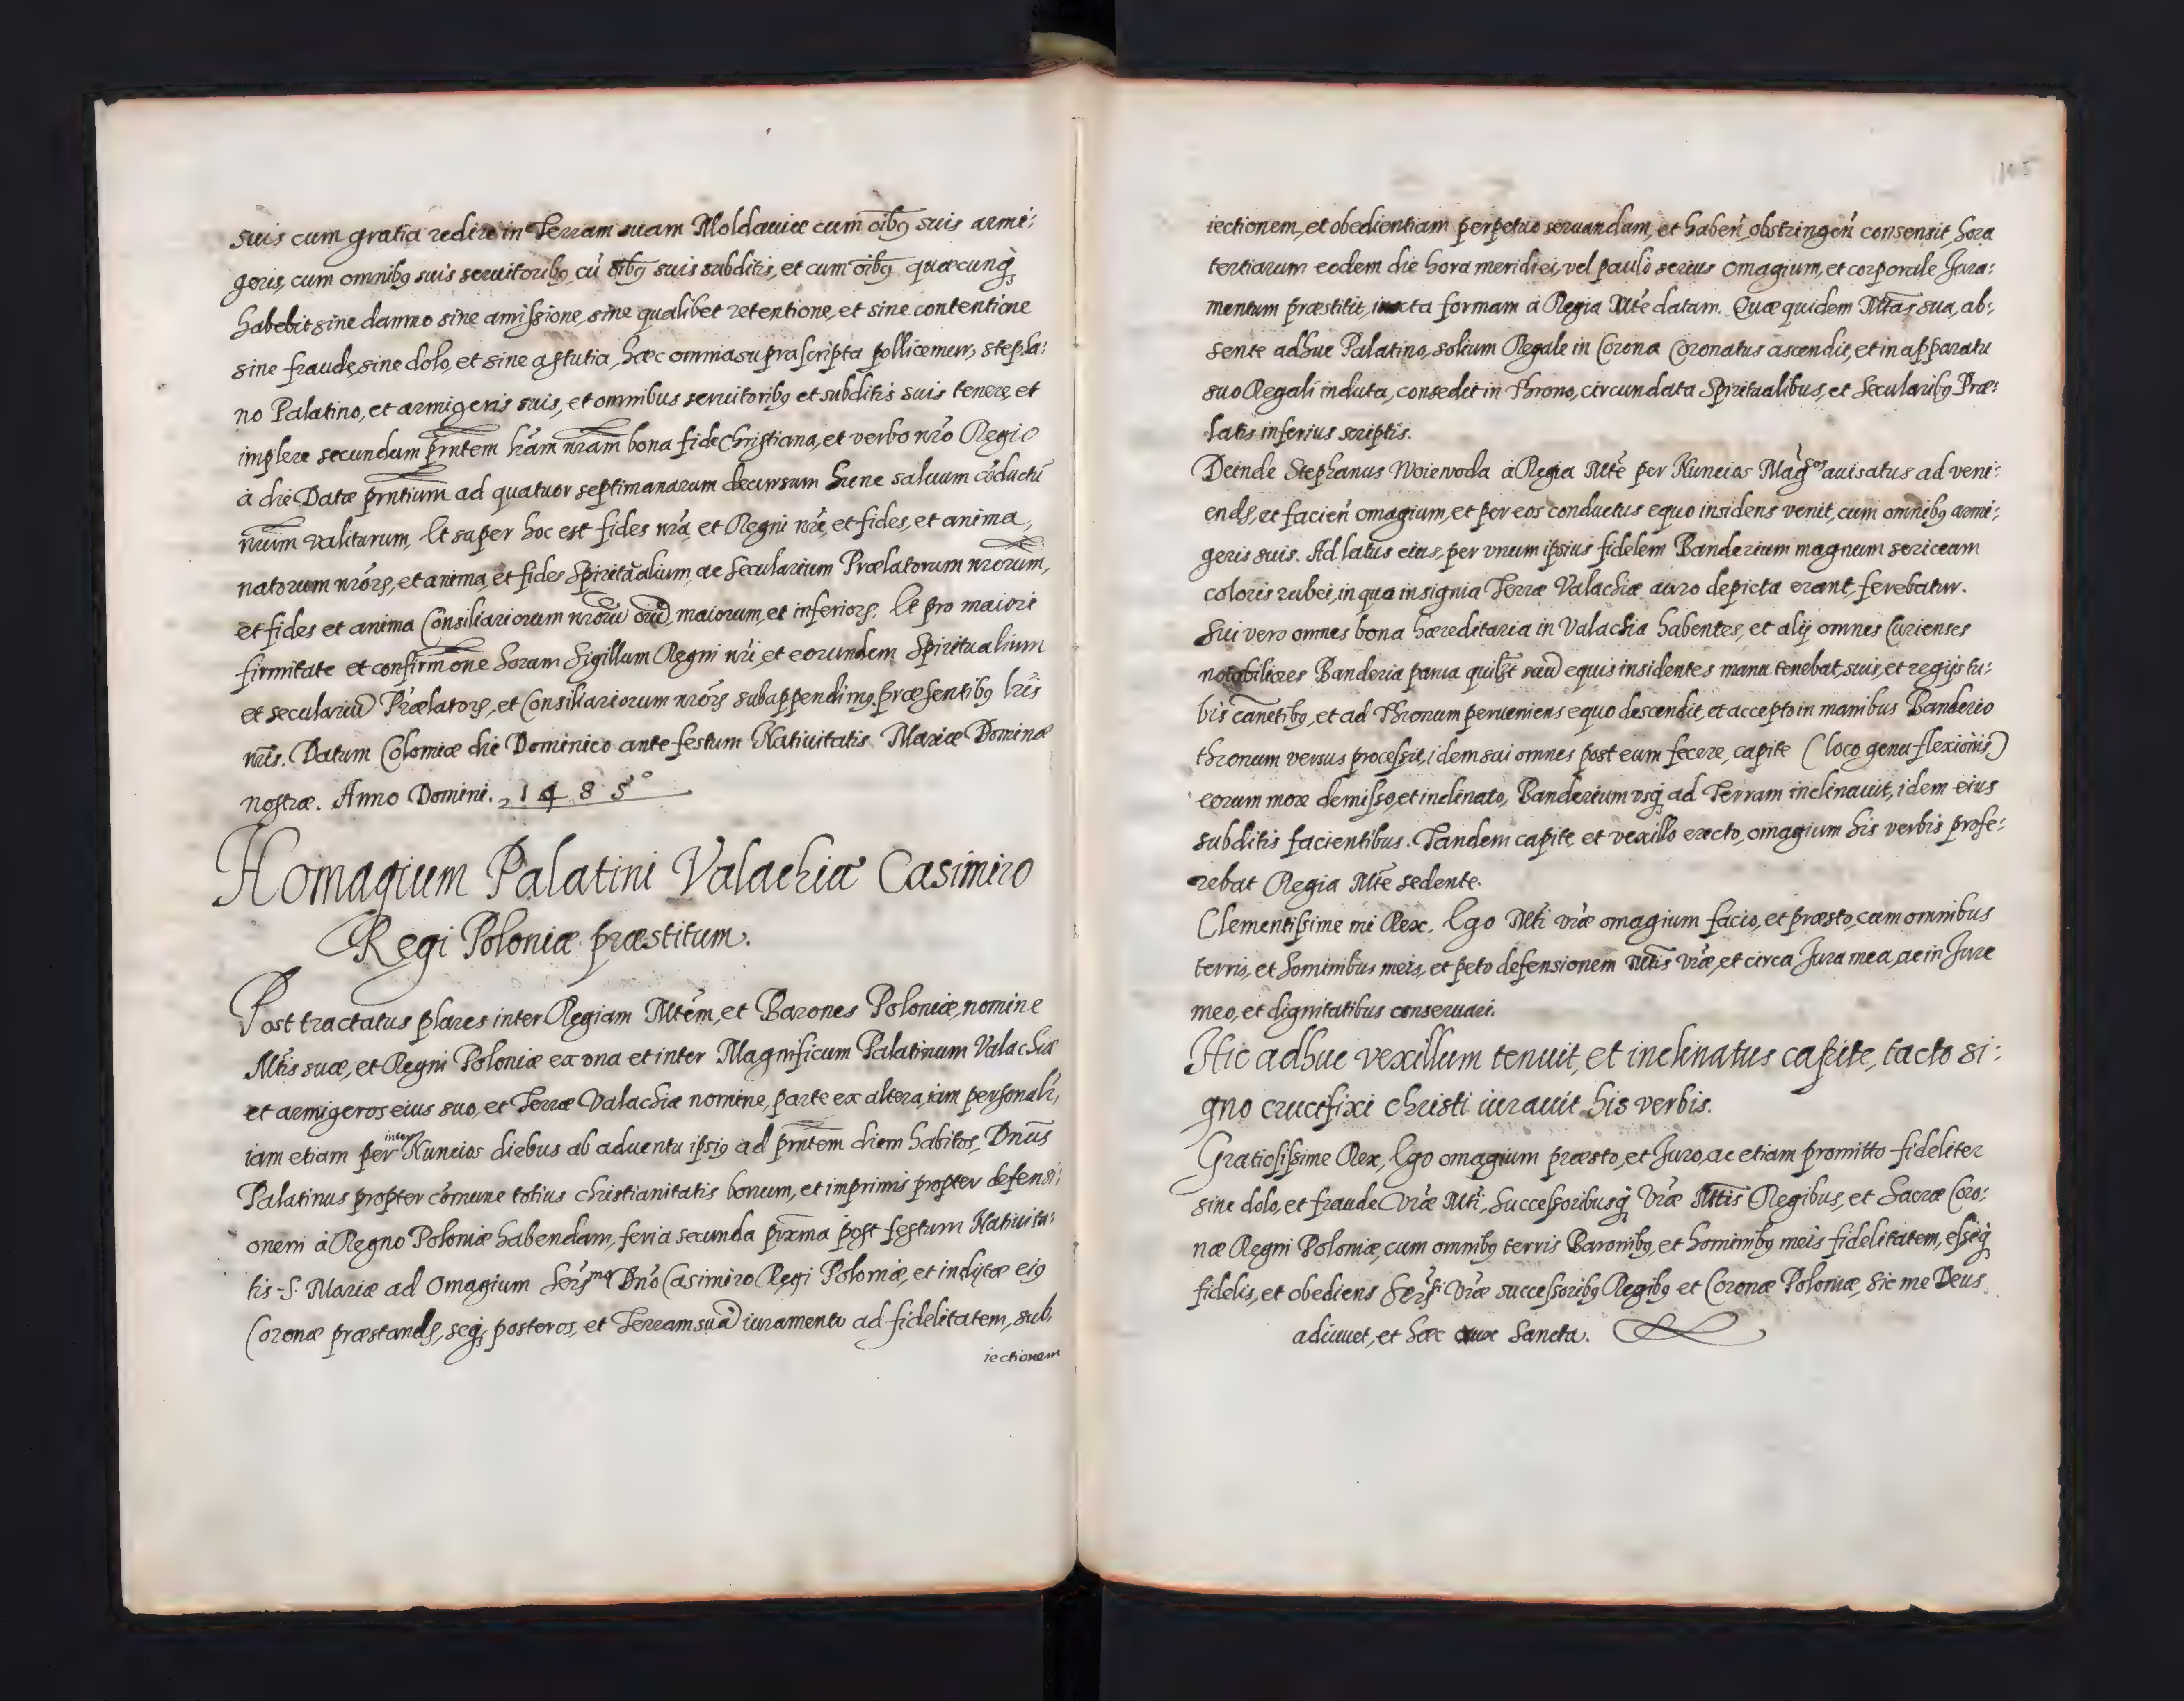 suis cum gratia redire in Terram suam Moldauiæ cum oĩbꝯ suis armi:
geris, cum omnibꝯ suis seruitoribꝯ, cũ oĩbꝯ suis subditis, et cum oĩbꝯ quæcunqꝫ
habebit sine damno sine amissione, sine qualibet retentione, et sine contentione
sine fraude, sine dolo, et sine astutia, hæc omnia supra scripta pollicemur, stepha:
no Palatino, et armigeris suis, et omnibus seruitoribꝯ et subditis suis tenere, et
implere secundum pr̃ntem l̃ram nr̃am bona fide christiana, et verbo nr̃o Regio
à die Datæ pr̃ntium ad quatuor septimanarum decursum hunc saluum cõductũ
nr̃um valiturum, Et super hoc est fides nr̃a, et Regni nr̃i, et fides, et anima,
natorum nr̃orꝝ, et anima, et fides Spiritualium, ac Secularium Prælatorum nr̃orum,
et fides et anima Consiliariorum nr̃orũ oĩũ maiorum, et inferiorꝝ. Et pro maiori
firmitate et confirmõne horam Sigillum Regni nr̃i, et eorundem Spiritualium
et seculariũ Prælatorꝝ, et Consiliariorum nr̃orꝝ subappendimꝯ. præsentibꝯ l̃ris
nr̃is. Datum Colomiæ die Dominico ante festum Natiuitatis Mariæ Dominæ
nostræ. Anno Domini. 1485°
Homagium Palatini Valachiæ Casimiro
Regi Poloniæ præstitum.
Post tractatus plures inter Regiam Mtẽm, et Barones Poloniæ, nomine
Mtĩs suæ, et Regni Poloniæ ex una et inter Magnificum Palatinum Valachiæ
et armigeros eius suo, et Terræ Valachiæ nomine, parte ex altera, iam personalr̃,
iam etiam per inter Nuncios diebus ab aduentu ipsiꝯ ad pr̃ntem diem habitos, Dnũs
Palatinus propter cõmune totius christianitatis bonum, et imprimis propter defensi:
onem à Regno Poloniæ habendam, feria secunda prx̃ma post festum Natiuita:
tis S. Mariæ ad Omagium Serꝝ.mo Dnõ Casimiro Regi Poloniæ, et inclytæ eiꝯ
Coronæ præstandũ, seqꝫ, posteros, et Terram suã iuramento ad fidelitatem, sub,
iectionem
iectionem, et obedientiam perpetuo seruandam, et habeñ, obstringeñ consensit, hora
tertiarum eodem die hora meridiei, vel paulò serius Omagium, et corporale Jura:
mentum præstitit, iuxta formam à Regia Mtẽ datam. Quæ quidem Mtãs sua, ab:
sente adhuc Palatino, solium Regale in Corona Coronatus ascendit, et in apparatu
suo Regali induta, consedit in Throno, circundata Spiritualibus, et Secularibꝯ Præ:
latis inferius scriptis.
Deinde Stephanus Woieuoda à Regia Mtẽ per Nuncios Mag̃cos auisatus ad veni:
endũ, et facieñ omagium, et per eos conductus equo insidens venit, cum omnibꝯ armi:
geris suis. Ad latus eius, per vnum ipsius fidelem Banderium magnum sericeum
coloris rubei, in quo insignia Terræ Valachiæ auro depicta erant, ferebatur.
Sui vero omnes bona hæreditaria in Valachia habentes, et alij omnes Curienses
notabiliores Banderia parua quilibet suũ equis insidentes manu tenebat, suis, et regijs tu:
bis canẽtibꝯ, et ad Thronum perueniens equo descendit, et accepto in manibus Banderio
thronum versus processit, idem sui omnes post eum fecere, capite (loco genu flexionis)
eorum more demisso, et inclinato, Banderium vsqꝫ ad Terram inclinauit, idem eius
subditis facientibus. Tandem capite, et vexillo erecto, omagium his verbis profe:
rebat Regia Mtẽ sedente.
Clementissime mi Rex. Ego Mtĩ vr̃æ omagium facio, et præsto, cum omnibus
terris, et hominibus meis, et peto defensionem Mtĩs vr̃æ, et circa Jura mea, ac in Jure
meo, et dignitatibus conseruari.
Hic adhuc vexillum tenuit, et inclinatus capite, tacto si:
gno crucifixi christi iurauit his verbis.
Gratiosissime Rex, Ego omagium præsto, et Juro, ac etiam promitto fideliter
sine dolo, et fraude vr̃æ Mtĩ, Successoribusqꝫ vr̃æ Mtt̃is Regibus, et Sacræ Coro:
næ Regni Poloniæ, cum omnibꝯ terris Baronibꝯ, et hominibꝯ meis fidelitatem, esseqꝫ
fidelis, et obediens Serꝝ.ti vr̃æ successoribꝯ Regibꝯ et Coronæ Poloniæ, Sic me Deus
adiuuet, et hæc crux Sancta.